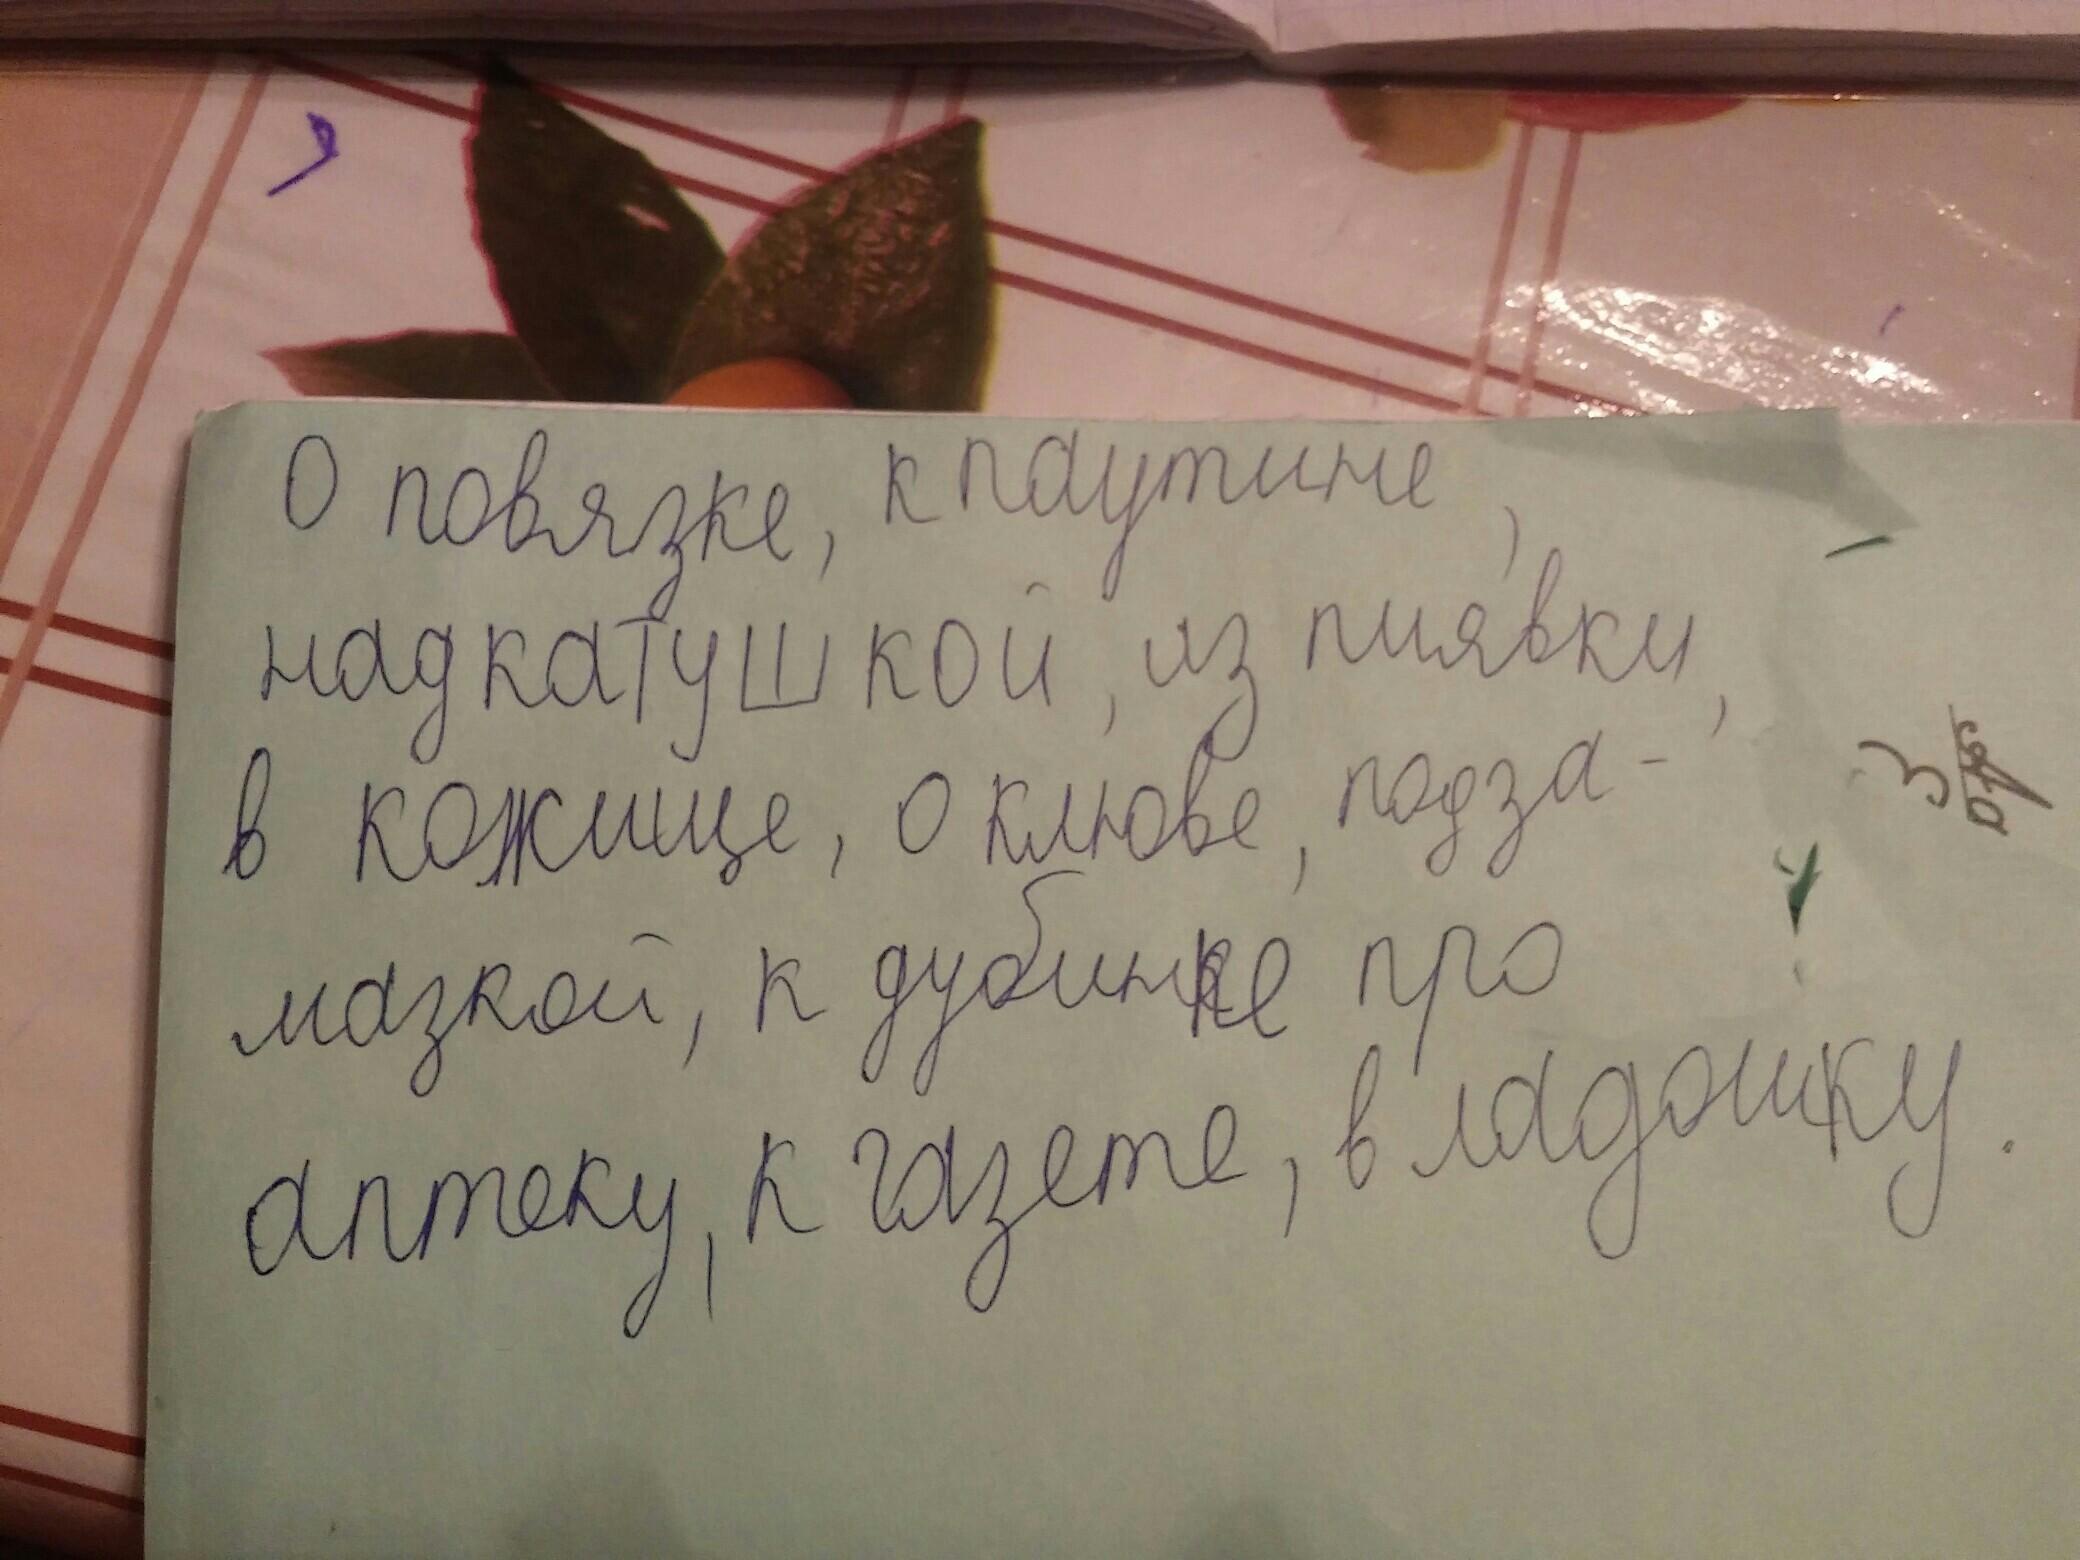 О повязке, к паутине,
над катушкой, из пиявки,
в кожище, о клюве, подза-
мазкой, к дубинке про
аптеку, к газете, в ладошку.